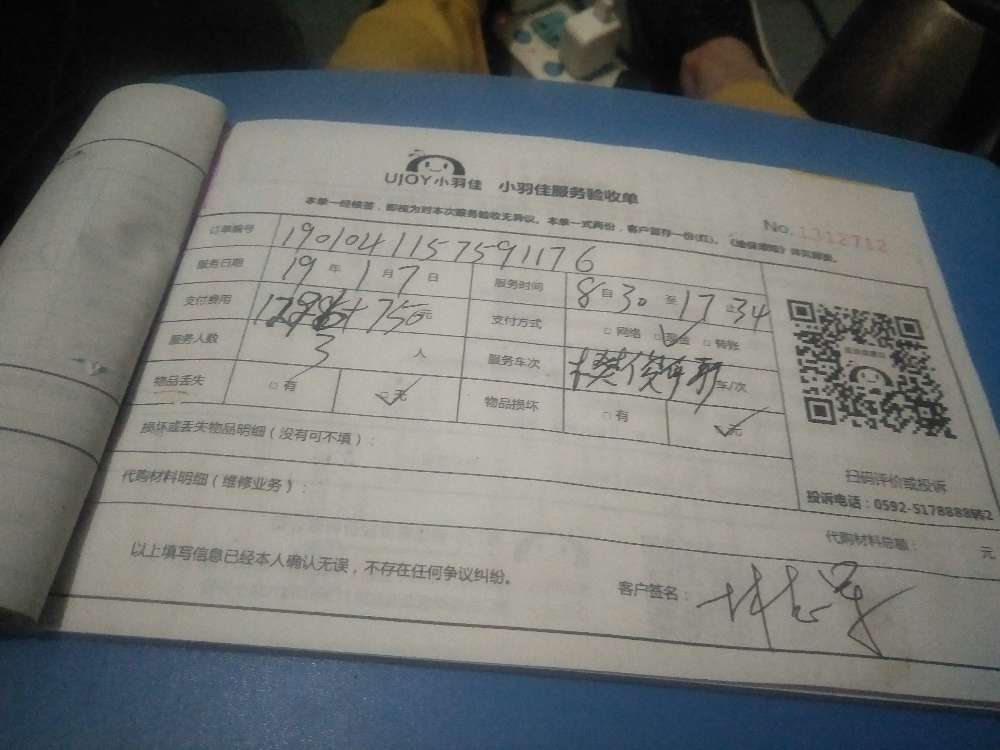 UJOY小羽佳 小羽佳服务验收单
No.1312712
本单一经核答，即视为对本次服务验收无异议。本单一式两份，客户留存一份(红)。
订单编号 190104115759 1176
服务日期 19 年 1 月 7 日 服务时间 8 30 至 17 34
支付费用 + 750 元 支付方式 □网络 ☑现金 □转账
服务人数 3 人 服务车次 车/次
物品丢失 □有 ☑无 物品损坏 □有 ☑无
损坏或丢失物品明细（没有可不填）：
扫码评价或投诉
代购材料明细（维修业务）：
投诉电话：0592-5178888转2
代购材料总额： 元
以上填写信息已经本人确认无误，不存在任何争议纠纷。
客户签名：